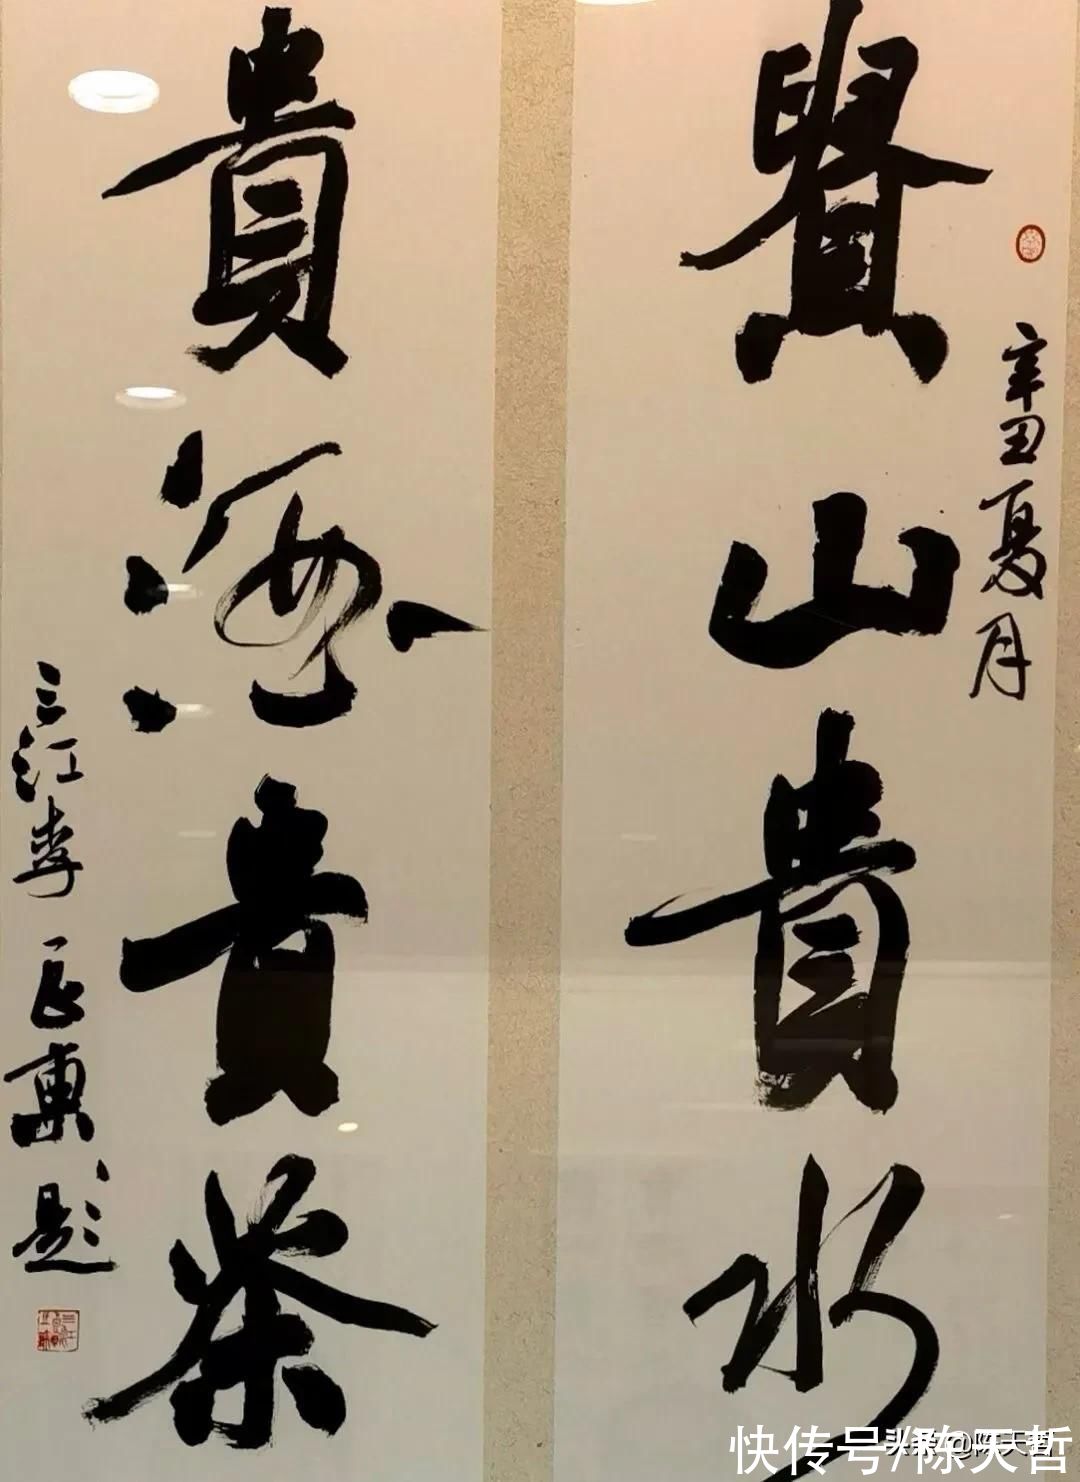 賢山貴水
貴海貴茶
辛丑夏月
三江李良東題
快传号/陈天哲
头条 @陈天哲